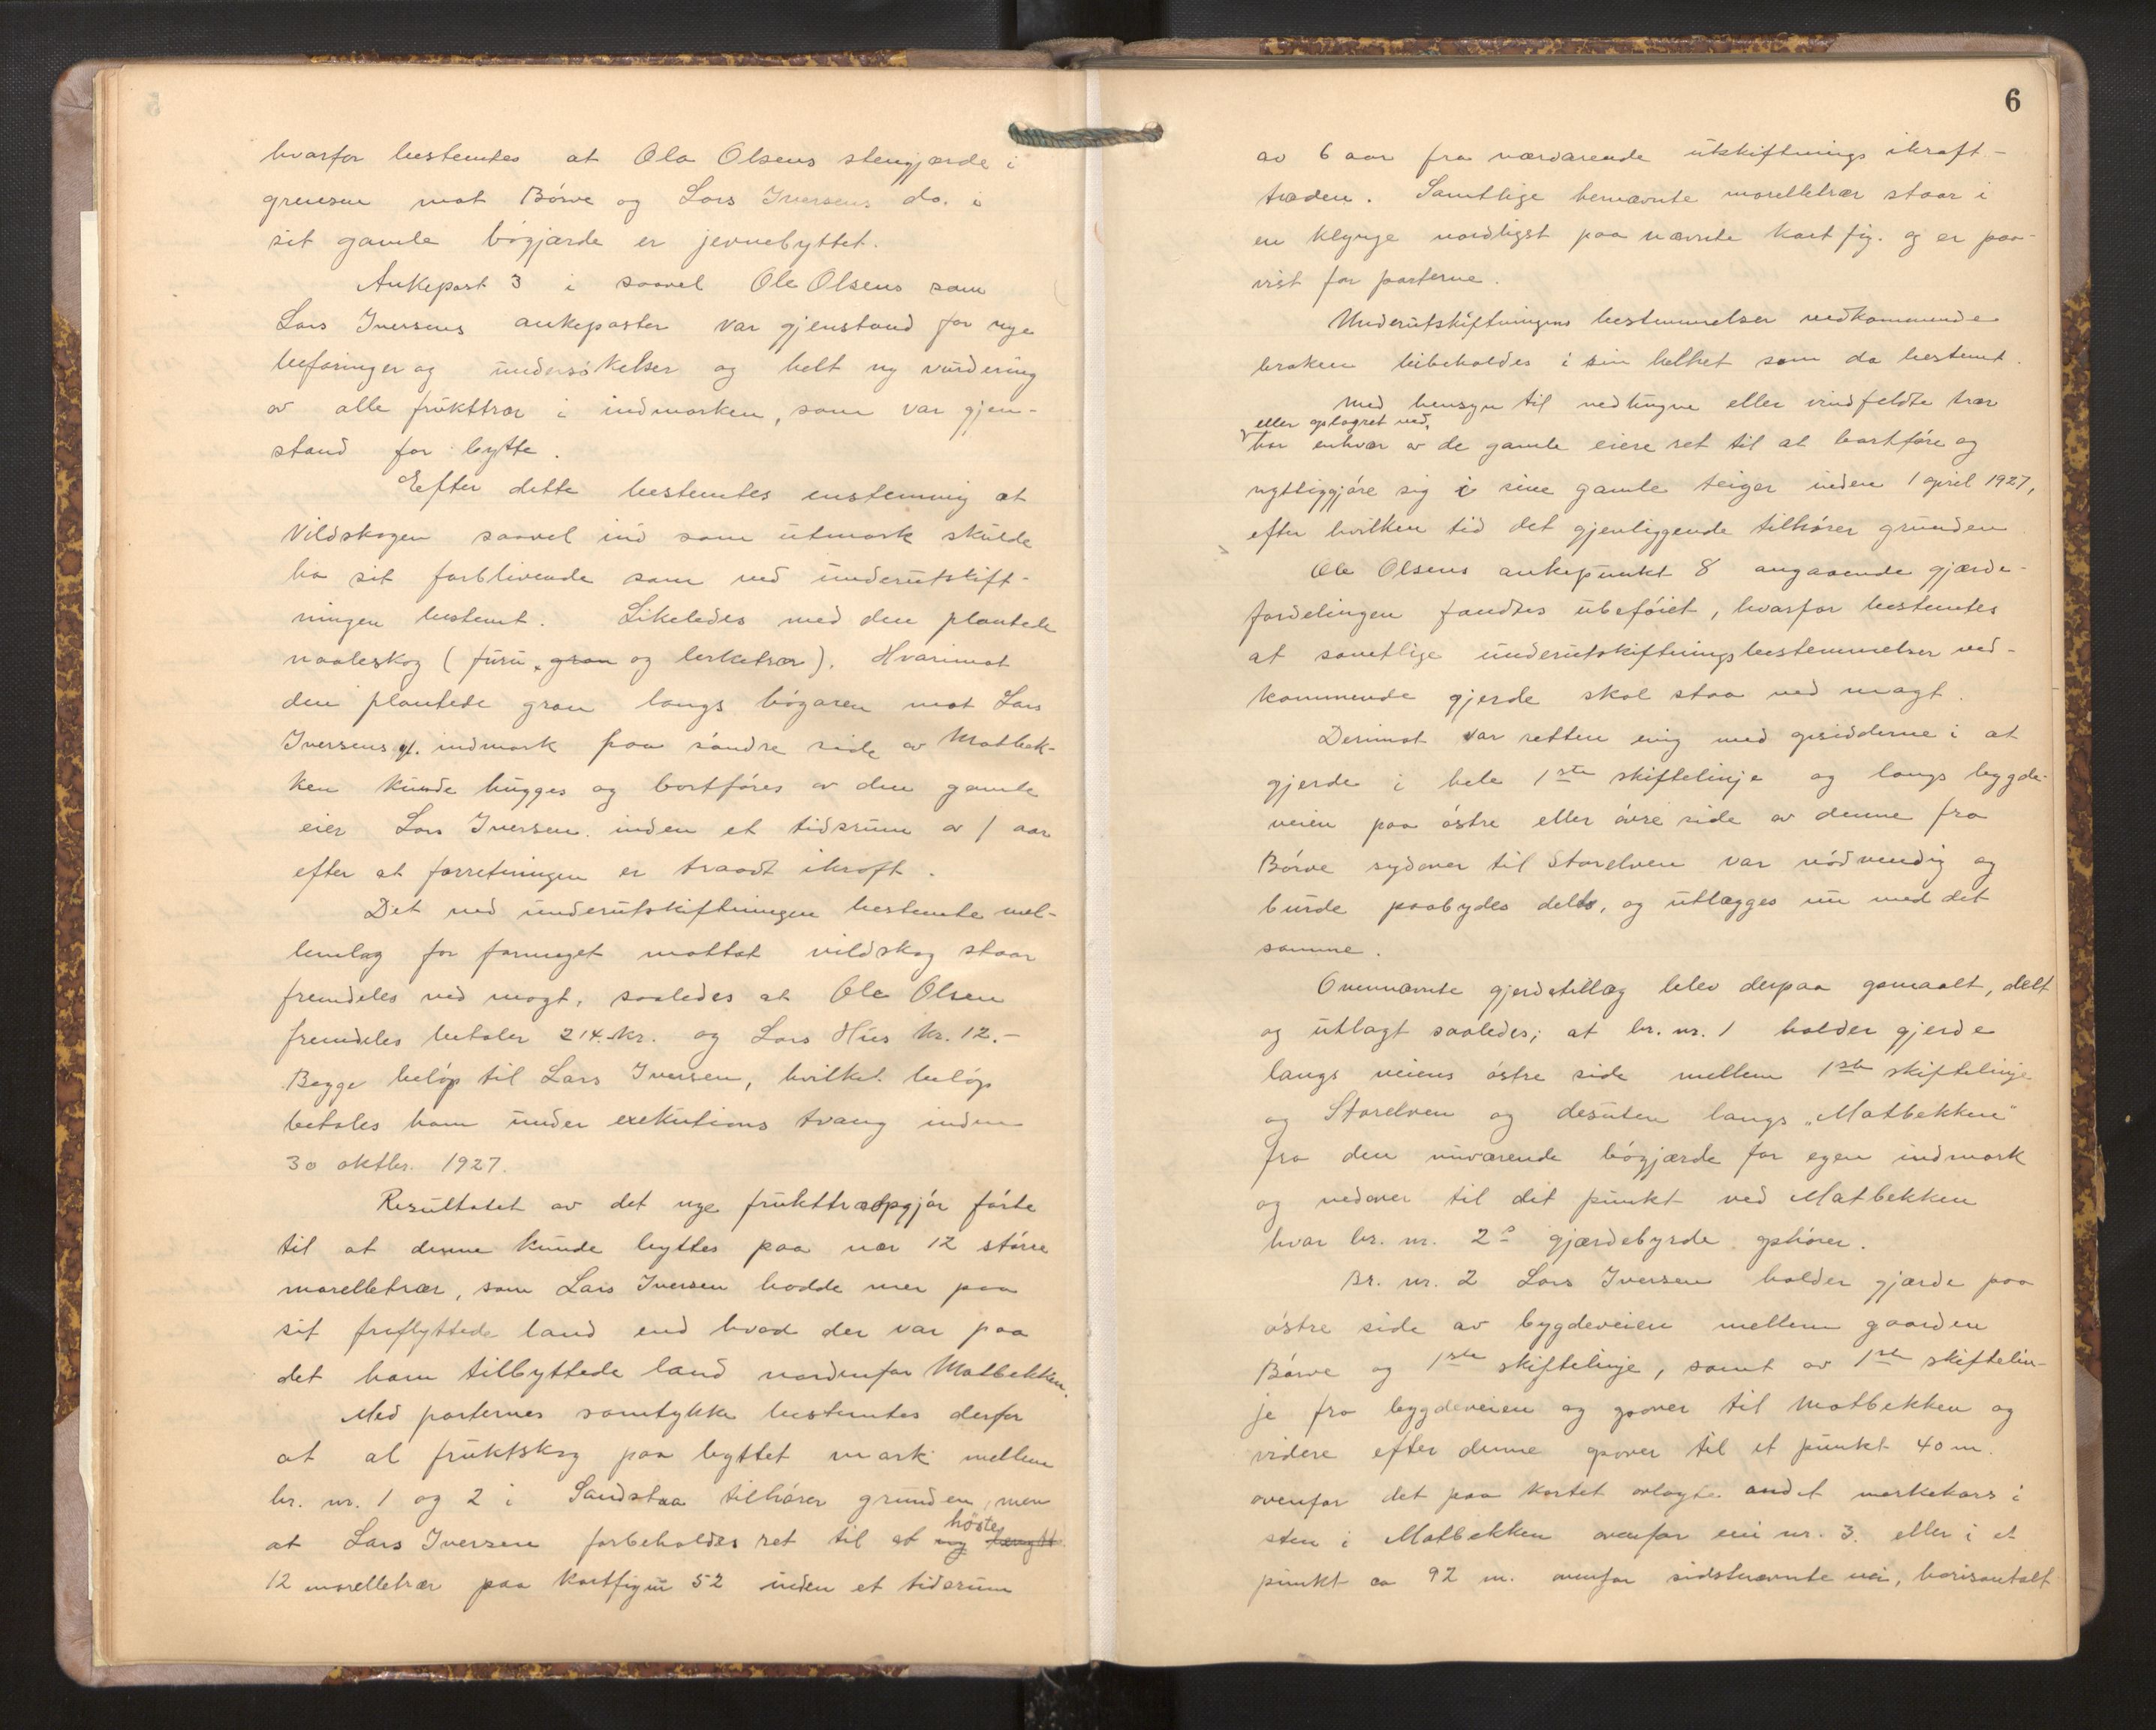 hvorfor bestemtes at Ola Olsens stengjærde i
grensen mot Börve og Lars Iversens do. i
sit gamle bögjærde er jevnebyttet.
Ankepost 3 i saavel Ole Olsens som
Lars Iversens ankeposter var gjenstand for nye
befaringer og undersökelser og helt ny vurdering
av alle frukttrær i indmarken, som var gjen-
stand for bytte.
Efter dette bestemtes enstemmig at
Vildskogen saavel ind som utmark skulde
ha sit forblivende som ved underutskift-
ningen bestemt. Likeledes med den plantede
naaleskog (furu, gran og lerketrær). Hvorimot
den plantede gran langs bögaren mot Lars
Iversens gl. indmark paa söndre side av Matbek-
ken kunde hugges og bortföres av den gamle
eier Lars Iversen inden et tidsrum av 1 aar
efter at forretningen er traadt ikraft.
Det ved underutskiftningen bestemte mel-
lemlag for formeget mottat vildskog staar
fremdeles ved magt, saaledes at Ole Olsen
fremdeles betaler 214.- kr. og Lars Hus kr. 12.-
Begge belöp til Lars Iversen, hvilket belöp
betales ham under exekutions tvang inden
30 oktbr. 1927.
Resultatet av det nye frukttræopgjör förte
til at denne kunde byttes paa nær 12 större
morelletrær, som Lars Iversen hadde mer paa
sit fraflyttede land end hvad der var paa
det ham tilbyttede land nordenfor Matbekken.
Med parternes samtykke bestemtes derfor
at al fruktskog paa byttet mark mellem
br. nr. 1 og 2 i Sandstaa tilhörer grunden, men
höste
at Lars Iversen forbeholdes ret til at
12 morelletrær paa kartfigur 52 inden et tidsrum
6
av 6 aar fra nærværende utskiftnings ikraft-
træden. Samtlige benævnte morelletrær staar i
en klynge nordligst paa nævnte kart fig. og er paa-
vist for parterne.
Underutskiftningens bestemmelser vedkommende
braken bibeholdes i sin helhet som da bestemt.
Med hensyn til nedhugne eller vindfeldte trær
eller oplagret ved,
har enhver av de gamle eiere ret til at bortföre og
nyttiggjöre sig i sine gamle teiger inden 1 april 1927,
efter hvilken tid det gjenliggende tilhörer grunden
Ole Olsens ankepunkt 8 angaaende gjærde-
fordelingen fandtes ubeföiet, hvorfor bestemtes
at samtlige underutskiftningsbestemmelser ved-
kommende gjerde skal staa ved magt.
Derimot var retten enig med opsidderne i at
gjerde i hele 1ste skiftelinje og langs bygde-
veien paa östre eller övre side av denne fra
Börve sydover til Storelven var nödvendig og
burde paabydes delts, og utlægges nu med det
samme.
Ovennævnte gjerdetillæg blev derpaa opmaalt, delt
og utlagt saaledes; at br. nr. 1 holder gjerde
langs veiens östre side mellem 1ste skiftelinje
og Storelven og desuten langs "Matbekken"
fra den nuværende bögjærde for egen indmark
og nedover til det punkt ved Matbekken
hvor br. nr. 2s gjærdebyrde ophörer.
Br. nr. 2 Lars Iversen holder gjærde paa
östre side av bygdeveien mellem gaarden
Börve og 1ste skiftelinje, samt av 1ste skiftelin-
je fra bygdeveien og opover til Matbekken og
videre efter denne opover til et punkt 40 m.
ovenfor det paa kartet avlagte andet merkekors i
sten i Matbekken ovenfor vei nr. 3. eller i et
punkt ca 92 m. ovenfor sidstnævnte vei, horisontalt